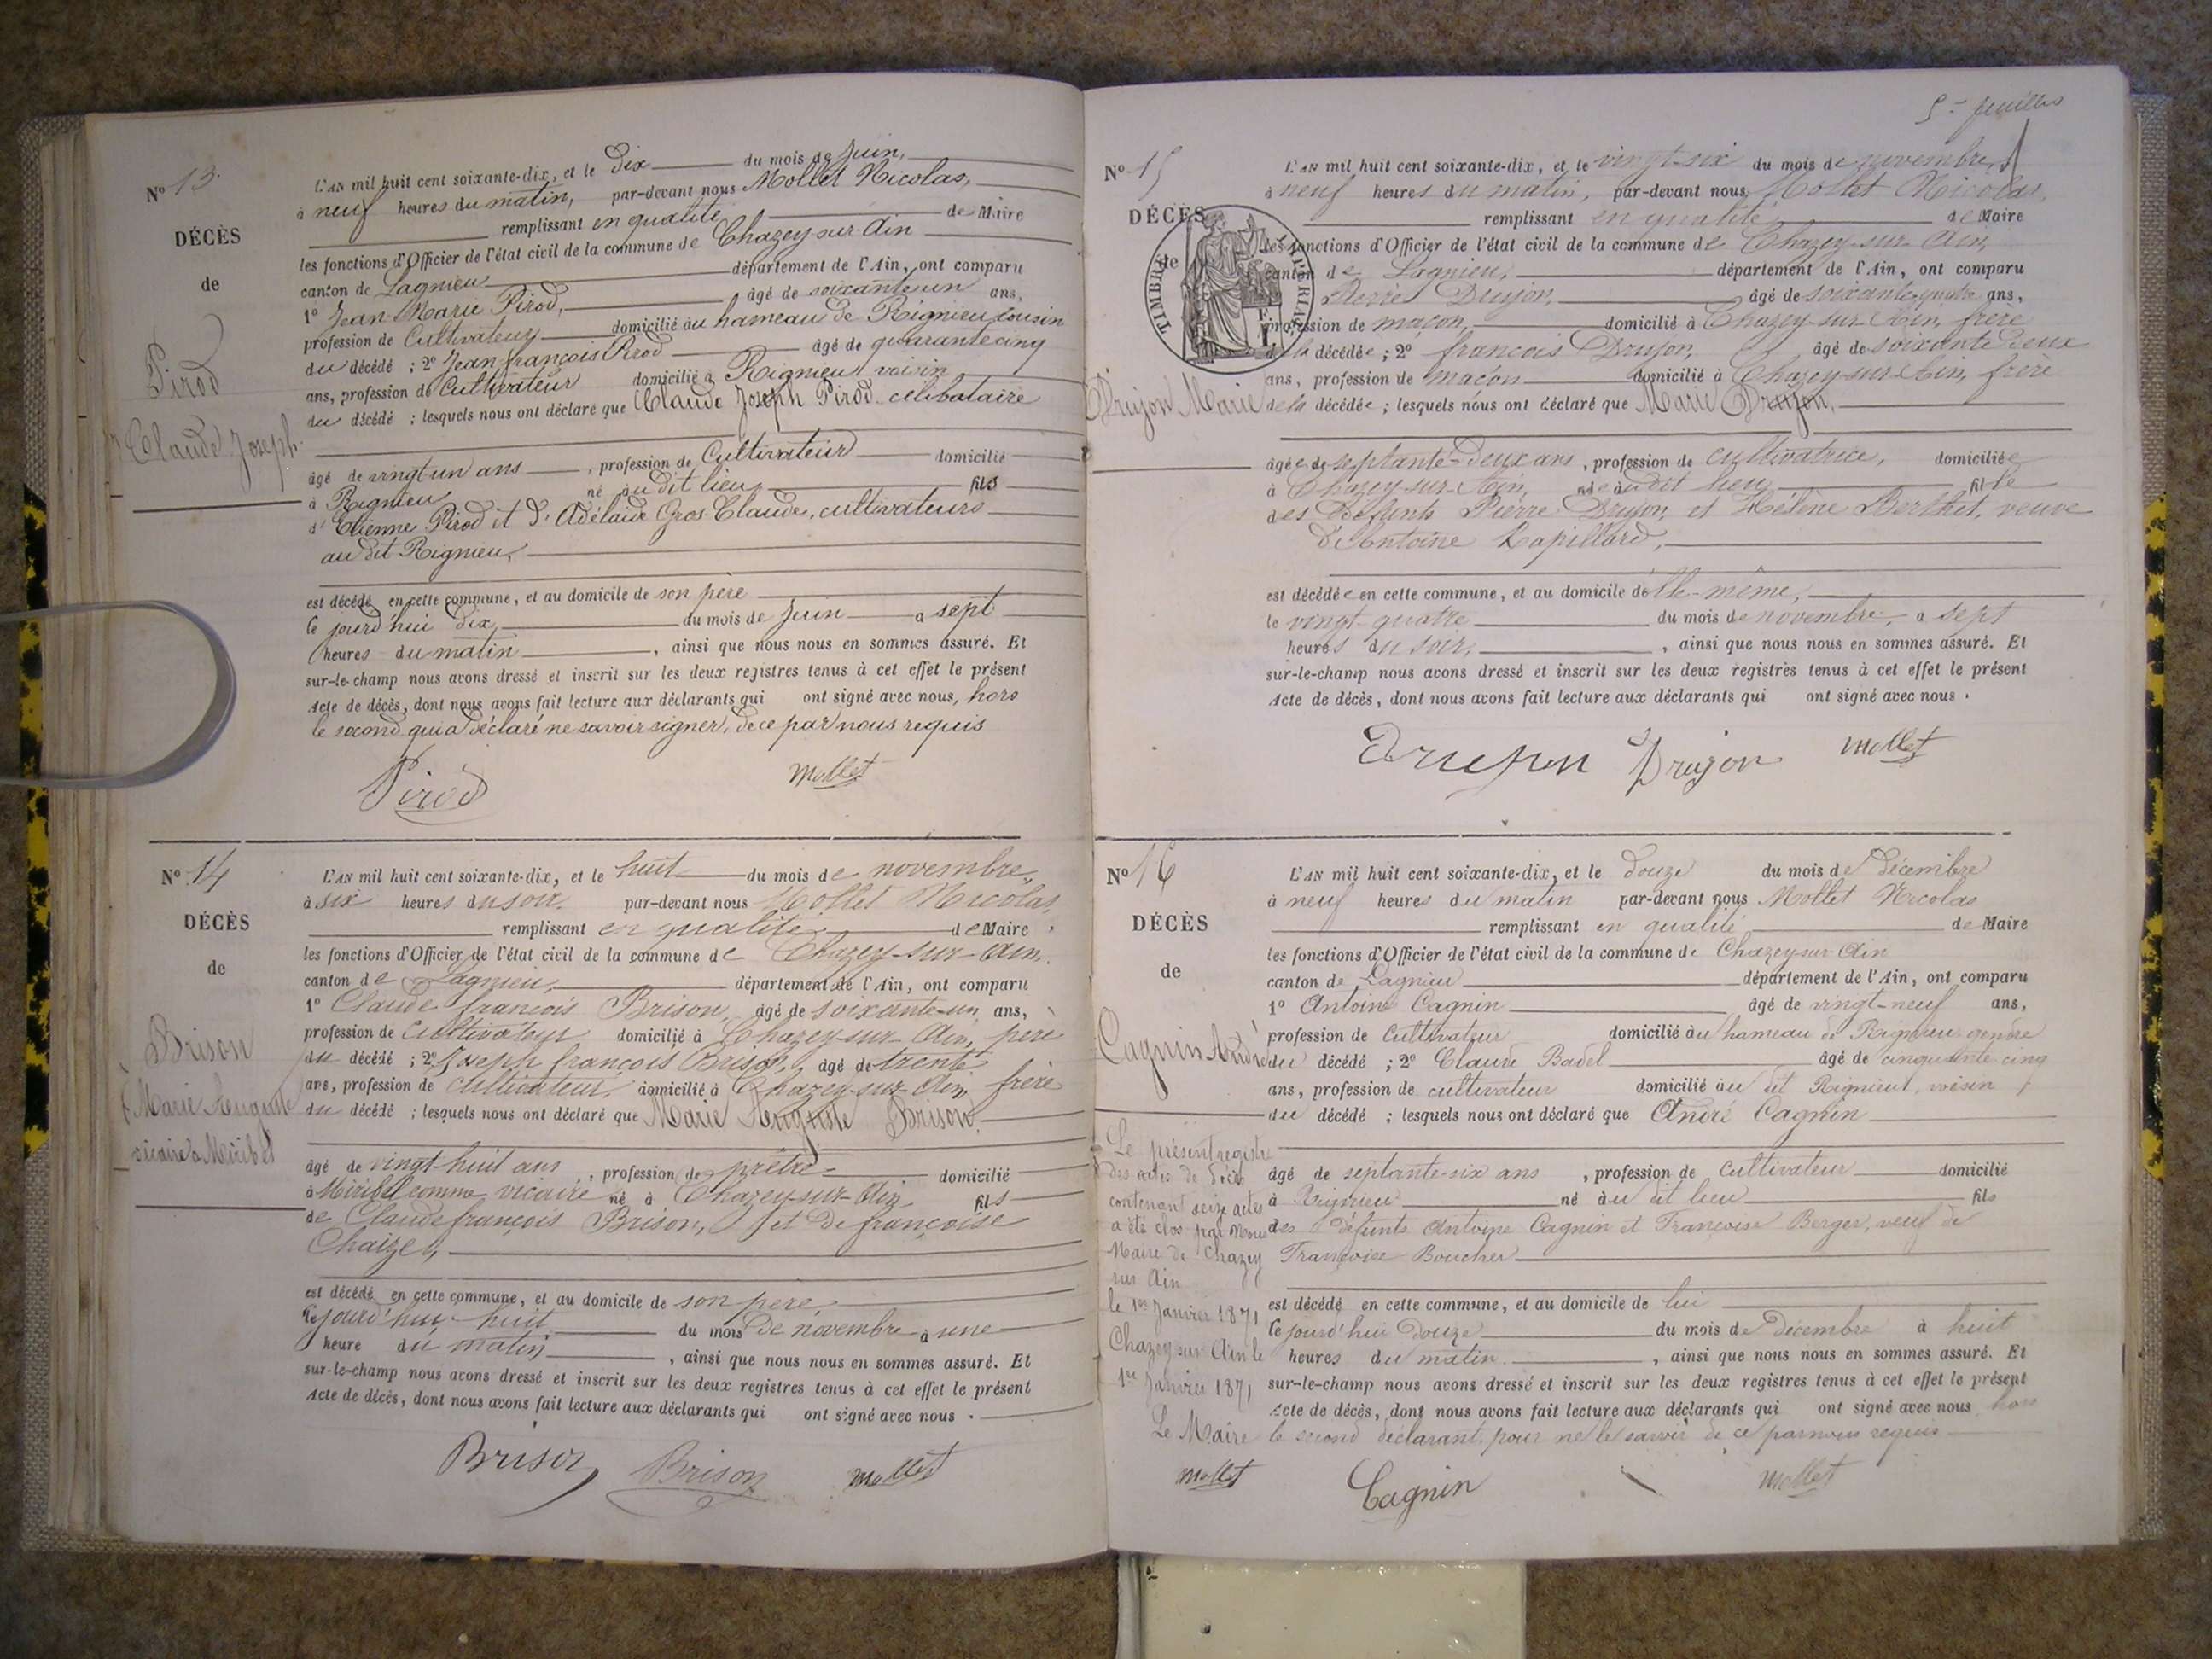 Nº 13.
DÉCÈS
de
Pirod
Claude Joseph.
L'AN mil huit cent soixante-dix, et le Dix du mois de Juin,
à neuf heures du matin, par-devant nous Mollet Nicolas,
remplissant en qualité de Maire
les fonctions d'Officier de l'état civil de la commune de Chazey-sur-Ain
canton de Lagnieu département de l'Ain, ont comparu
1º Jean-Marie Pirod, âgé de soixante un ans,
profession de Cultivateur domicilié au hameau de Rignieu cousin
du décédé ; 2º Jean françois Pirod âgé de quarante cinq
ans, profession de Cultivateur domicilié à Rignieu voisin
du décédé ; lesquels nous ont déclaré que Claude Joseph Pirod célibataire
âgé de vingt un ans, profession de Cultivateur domicilié
à Rignieu né au dit lieu fils
d'Etienne Pirod et d'Adélaïde Gros-Claude, cultivateurs
au dit Rignieu,
est décédé en cette commune, et au domicile de son père
le jourd'hui dix du mois de Juin à sept
heures du matin, ainsi que nous nous en sommes assuré. Et
sur-le-champ nous avons dressé et inscrit sur les deux registres tenus à cet effet le présent
Acte de décès, dont nous avons fait lecture aux déclarants qui ont signé avec nous, hors
le second qui a déclaré ne savoir signer, de ce par nous requis
Pirod Mollet
Nº 14
DÉCÈS
de
Brison
Marie Auguste
vicaire à Miribel
L'AN mil huit cent soixante-dix, et le huit du mois de novembre,
à six heures du soir, par-devant nous Mollet Nicolas,
remplissant en qualité de Maire
les fonctions d'Officier de l'état civil de la commune de Chazey-sur-Ain.
canton de Lagnieu, département de l'Ain, ont comparu
1º Claude françois Brison, âgé de soixante-un ans,
profession de cultivateur domicilié à Chazey-sur-Ain, père
du décédé ; 2º Joseph françois Brison, âgé de trente
ans, profession de cultivateur, domicilié à Chazey-sur-Ain, frère
du décédé ; lesquels nous ont déclaré que Marie Auguste Brison,
âgé de vingt-huit ans, profession de prêtre domicilié
à Miribel comme vicaire né à Chazey-sur-Ain fils
de Claude françois Brison, et de françoise
Chaizel,
est décédé en cette commune, et au domicile de son père,
le jourd'hui huit du mois de novembre à une
heure du matin, ainsi que nous nous en sommes assuré. Et
sur-le-champ nous avons dressé et inscrit sur les deux registres tenus à cet effet le présent
Acte de décès, dont nous avons fait lecture aux déclarants qui ont signé avec nous.
Brison Brison Mollet
5e feuilles
Nº 15
DÉCÈS
de
TIMBRE IMPÉRIAL
Drujon Marie
L'AN mil huit cent soixante-dix, et le vingt-six du mois de novembre,
à neuf heures du matin, par-devant nous Mollet Nicolas,
remplissant en qualité de Maire
les fonctions d'Officier de l'état civil de la commune de Chazey-sur-Ain,
canton de Lagnieu, département de l'Ain, ont comparu
Pierre Drujon, âgé de soixante-quatre ans,
profession de maçon, domicilié à Chazey-sur-Ain, frère
de la décédée ; 2º françois Drujon, âgé de soixante deux
ans, profession de maçon domicilié à Chazey-sur-Ain, frère
de la décédée ; lesquels nous ont déclaré que Marie Drujon,
âgée de septante-deux ans, profession de cultivatrice, domiciliée
à Chazey-sur-Ain, née au dit lieu fille
des défunts Pierre Drujon, et Hélène Berthet, veuve
d'Antoine Lapillard,
est décédée en cette commune, et au domicile d'elle-même,
le vingt-quatre du mois de novembre, à sept
heures du soir, ainsi que nous nous en sommes assuré. Et
sur-le-champ nous avons dressé et inscrit sur les deux registres tenus à cet effet le présent
Acte de décès, dont nous avons fait lecture aux déclarants qui ont signé avec nous.
Drujon Drujon Mollet
Nº 16
DÉCÈS
de
Cagnin André
L'AN mil huit cent soixante-dix, et le douze du mois de Décembre
à neuf heures du matin par-devant nous Mollet Nicolas
remplissant en qualité de Maire
les fonctions d'Officier de l'état civil de la commune de Chazey-sur-Ain
canton de Lagnieu département de l'Ain, ont comparu
1º Antoine Cagnin âgé de vingt-neuf ans,
profession de Cultivateur domicilié au hameau de Rignieu gendre
du décédé ; 2º Claude Badel âgé de cinquante cinq
ans, profession de cultivateur domicilié au dit Rignieu, voisin
du décédé ; lesquels nous ont déclaré que André Cagnin
âgé de septante-six ans, profession de cultivateur domicilié
à Rignieu né au dit lieu fils
des défunts Antoine Cagnin et Françoise Berger, veuf de
Françoise Boucher
est décédé en cette commune, et au domicile de lui
le jourd'hui douze du mois de Décembre à huit
heures du matin, ainsi que nous nous en sommes assuré. Et
sur-le-champ nous avons dressé et inscrit sur les deux registres tenus à cet effet le présent
Acte de décès, dont nous avons fait lecture aux déclarants qui ont signé avec nous hors
le second déclarant pour ne le savoir de ce par nous requis
Cagnin Mollet
Le présent registre
des actes de Décès
contenant seize actes
a été clos par Nous
Maire de Chazey
sur Ain
le 1er Janvier 1871
Chazey sur Ain le
1er Janvier 1871
Le Maire
Mollet